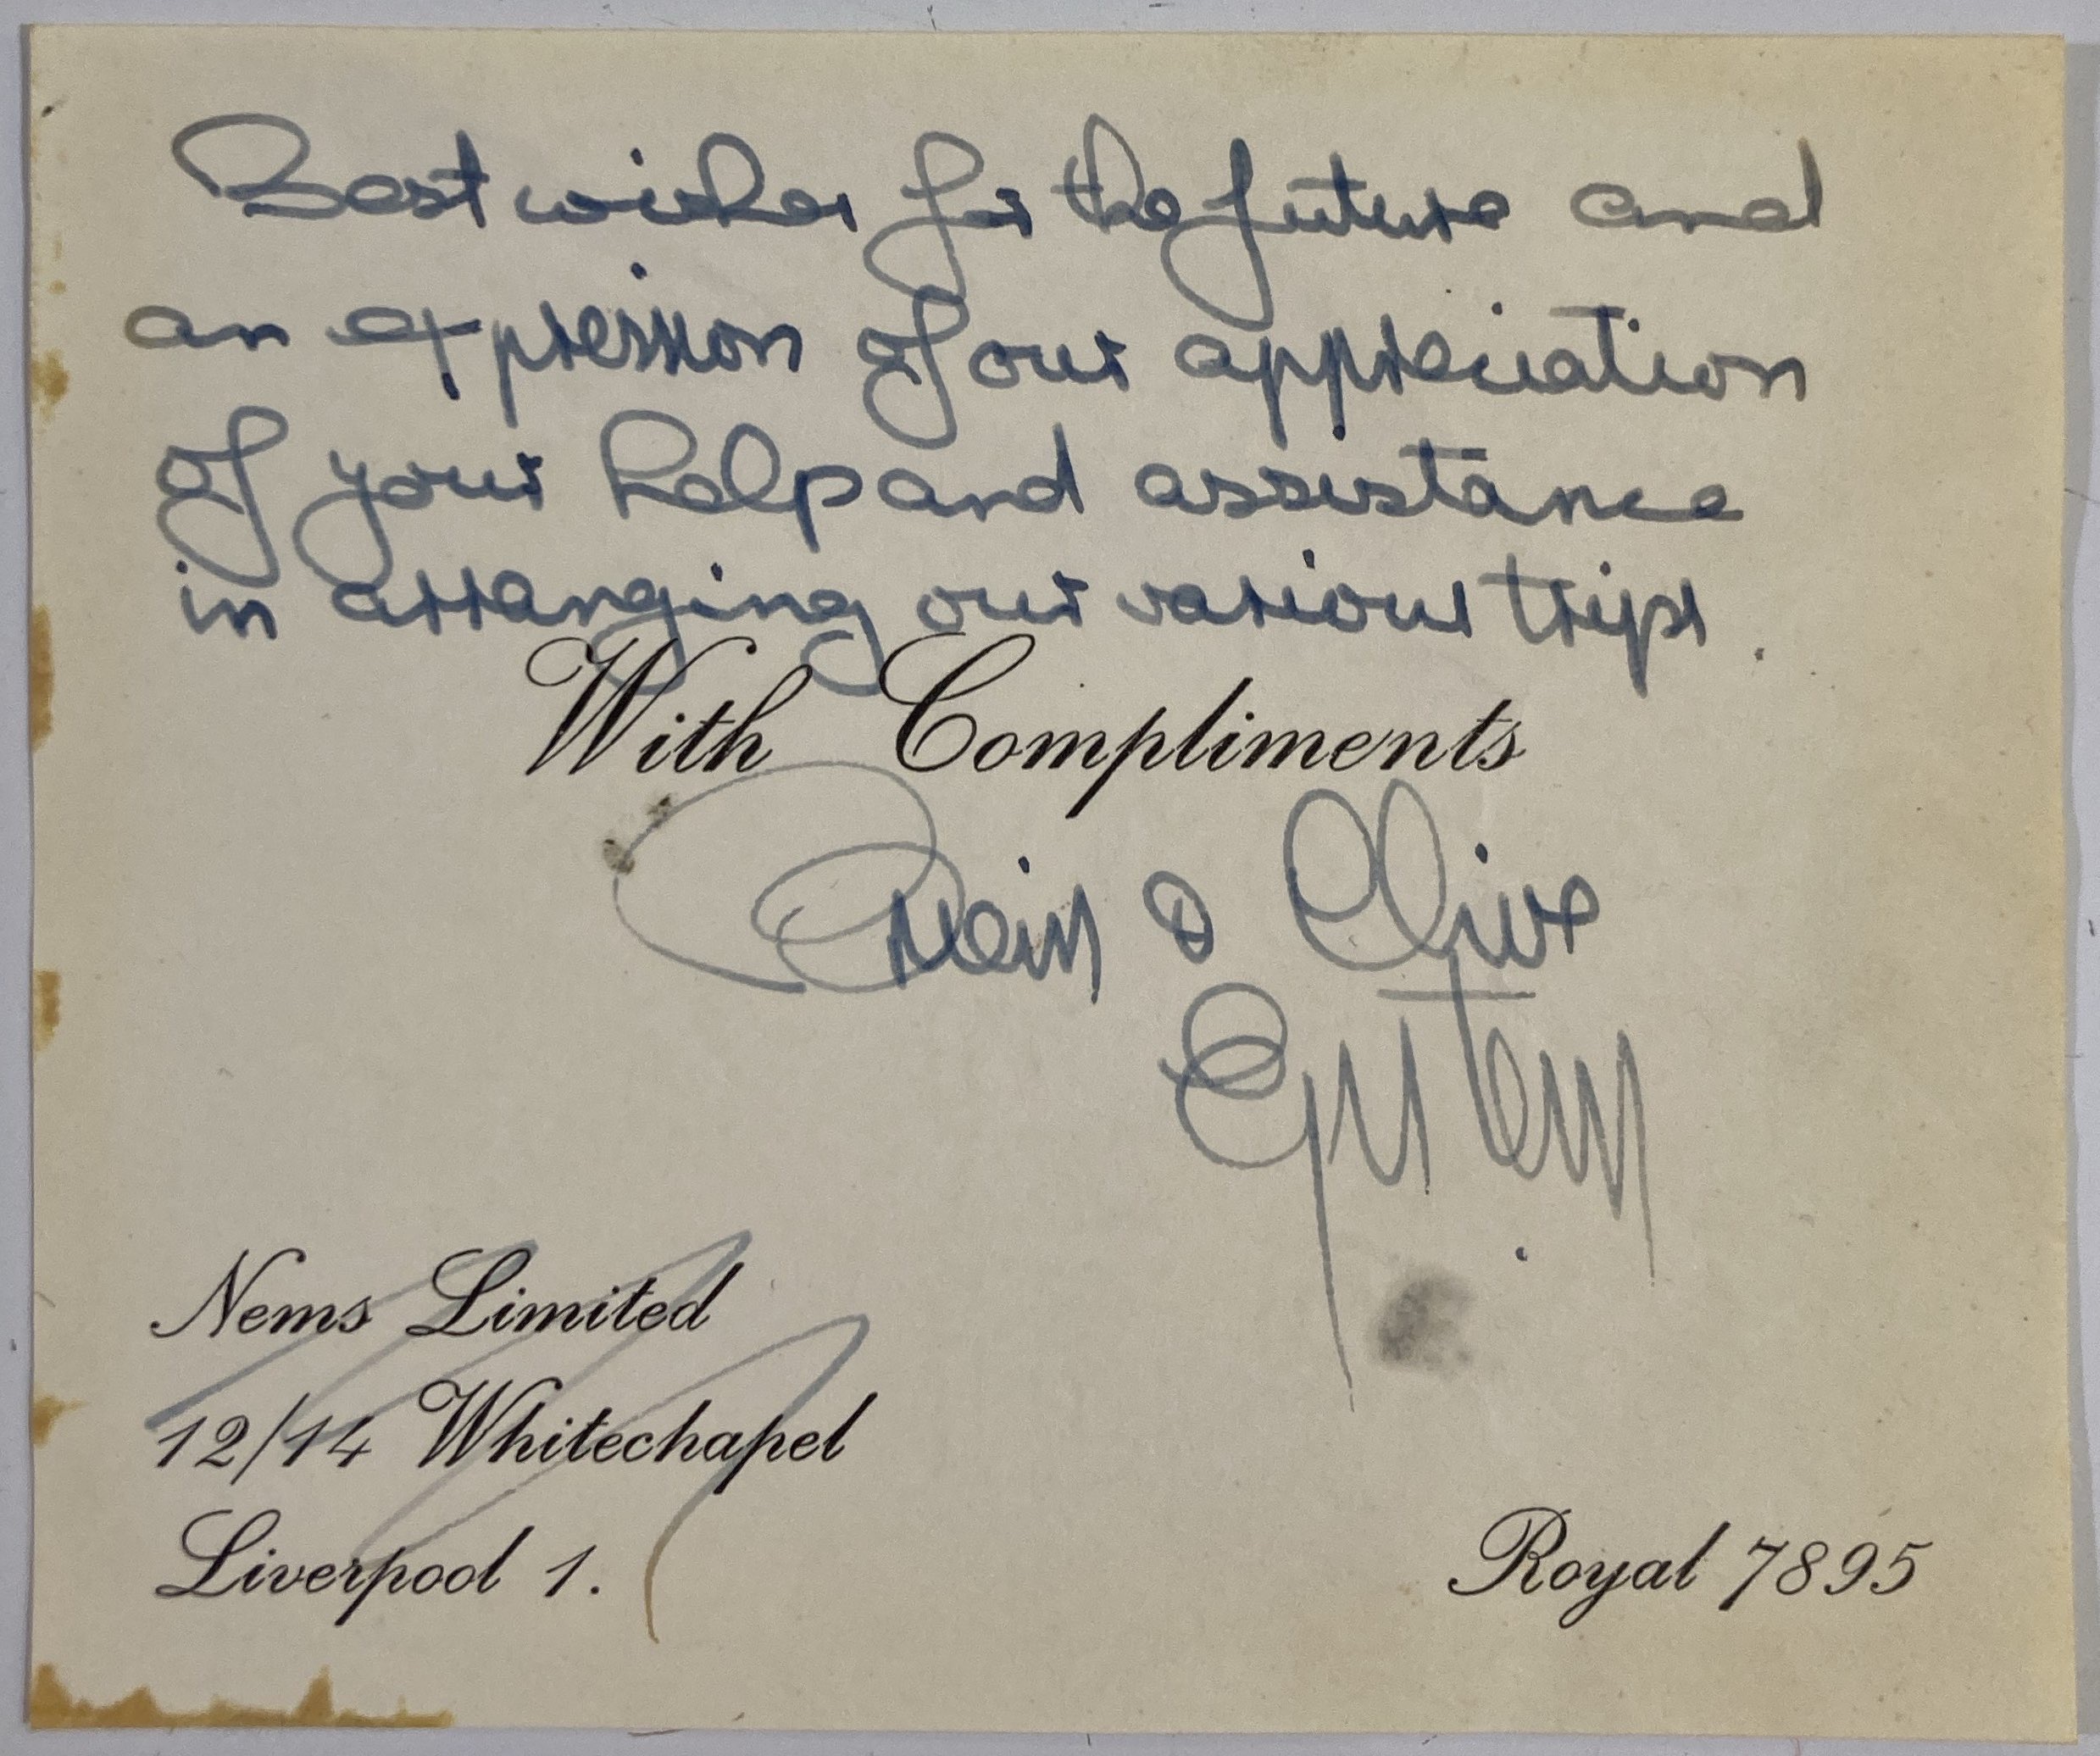 Best wishes for the future and
an expression of our appreciation
of your help and assistance
in arranging our various trips.
With Compliments
& Clive
Epstein
Nems Limited
12/14 Whitechapel
Liverpool 1.
Royal 7895